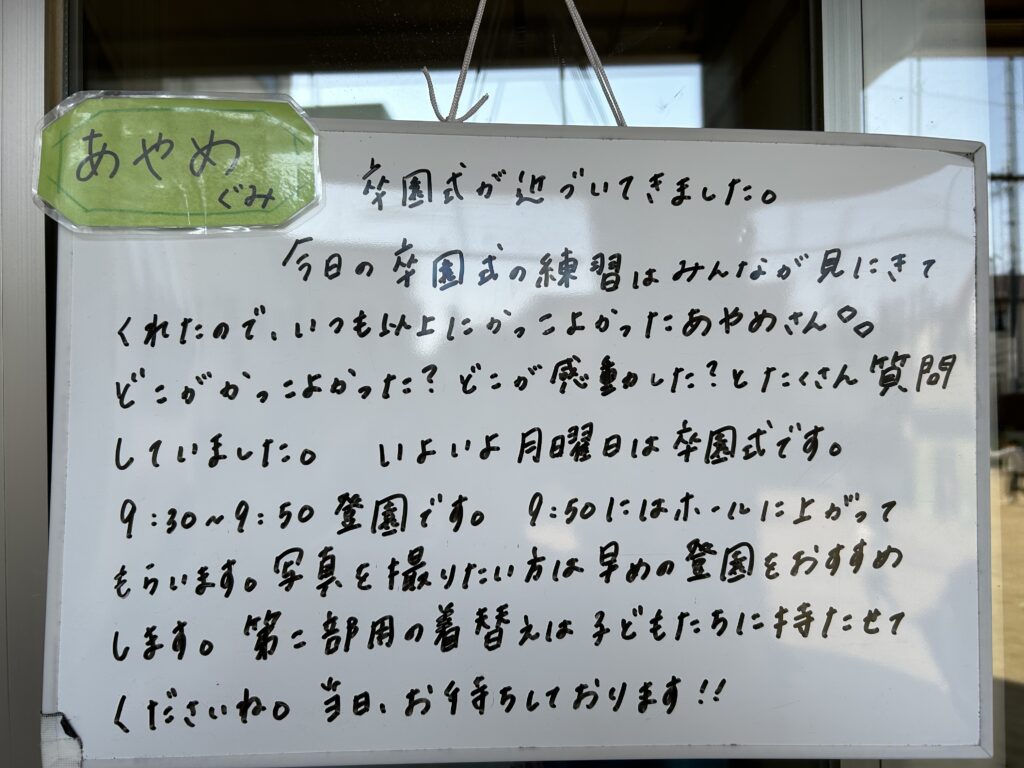 あやめ
ぐみ
卒園式が近づいてきました。
今日の卒園式の練習はみんなが見にきて
くれたので、いつも以上にかっこよかったあやめさん。。
どこがかっこよかった?どこが感動した?とたくさん質問
していました。 いよいよ月曜日は卒園式です。
9:30~9:50 登園です。 9:50にはホールに上がって
もらいます。写真を撮りたい方は早めの登園をおすすめ
します。第二部用の着替えは子どもたちに持たせて
くださいね。当日、お待ちしております!!